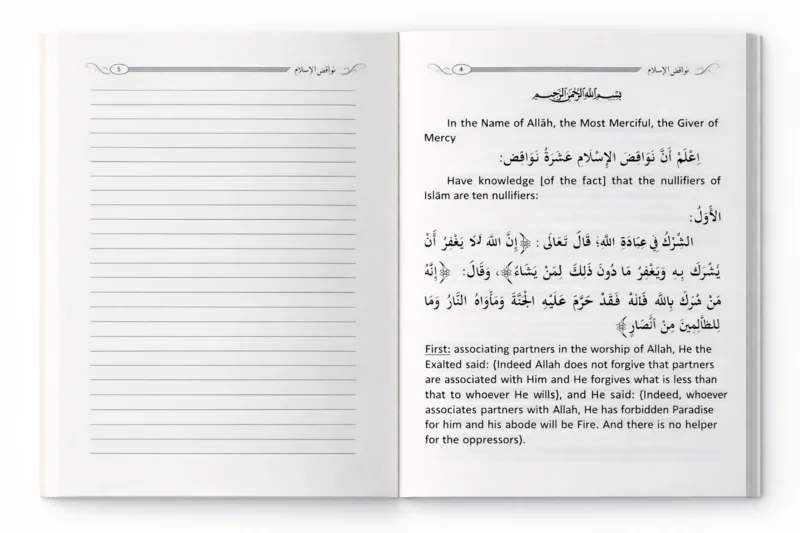 4 نواقض الإسلام
بسم الله الرحمن الرحيم
In the Name of Allāh, the Most Merciful, the Giver of
Mercy
اِعْلَمْ أَنَّ نَوَاقِضَ الإِسْلَامِ عَشَرَةُ نَوَاقِضَ:
Have knowledge [of the fact] that the nullifiers of
Islām are ten nullifiers:
الأَوَّلُ:
الشِّرْكُ فِي عِبَادَةِ اللَّهِ؛ قَالَ تَعَالَى: ﴿إِنَّ اللَّهَ لَا يَغْفِرُ أَنْ
يُشْرَكَ بِهِ وَيَغْفِرُ مَا دُونَ ذَلِكَ لِمَنْ يَشَاءُ﴾، وَقَالَ: ﴿إِنَّهُ
مَنْ بِاللَّهِ فَقَدْ حَرَّمَ عَلَيْهِ الْجَنَّةَ وَمَأْوَاهُ النَّارُ وَمَا
لِلظَّالِمِينَ مِنْ أَنْصَارٍ﴾
First: associating partners in the worship of Allah, He the
Exalted said: (Indeed Allah does not forgive that partners
are associated with Him and He forgives what is less than
that to whoever He wills), and He said: (Indeed, whoever
associates partners with Allah, He has forbidden Paradise
for him and his abode will be Fire. And there is no helper
for the oppressors).
5 نواقض الإسلام